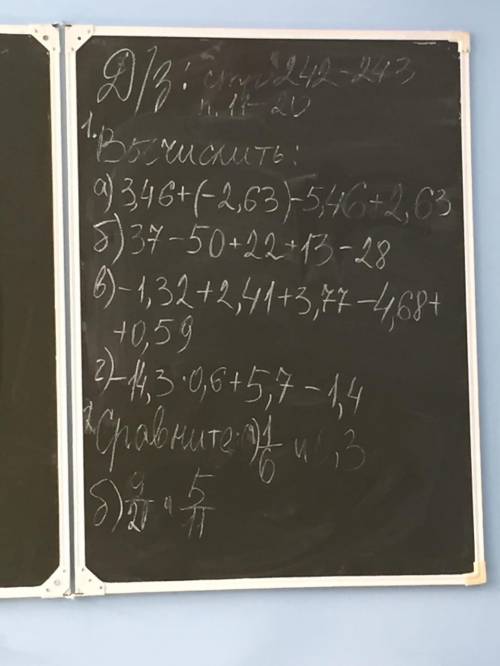 Д/З: стр 242-243
п. 11-20
1. Вычислить:
а) 3,46+(-2,63)-5,46+2,63
б) 37-50+22+13-28
в) -1,32+2,41+3,77-4,68+
+0,59
г) -14,3·0,6+5,7-1,4
2. Сравните: а) 1/6 и ,3
б) 9/20 и 5/11